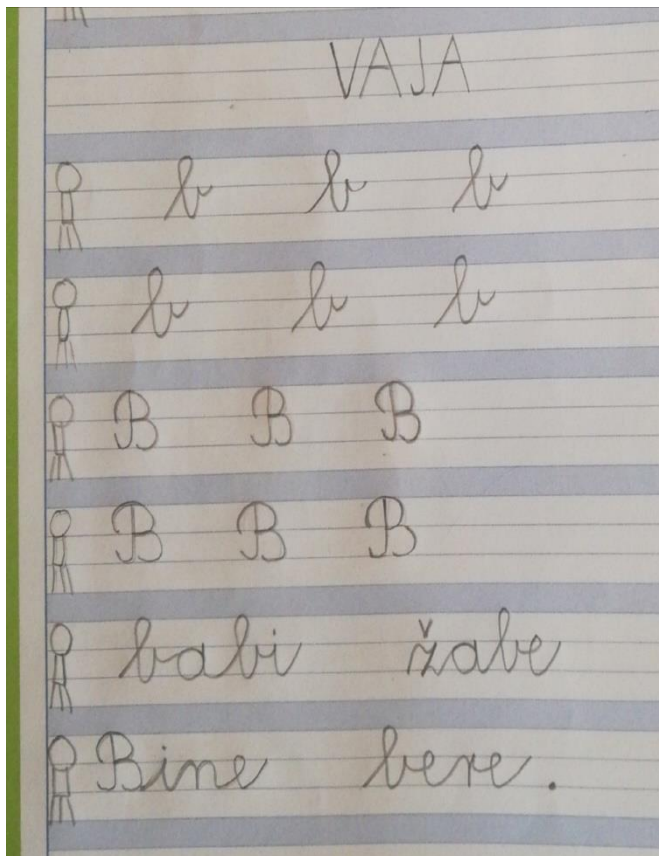 VAJA
b b b
b b b
B B B
B B B
babi žabe
Bine bere.